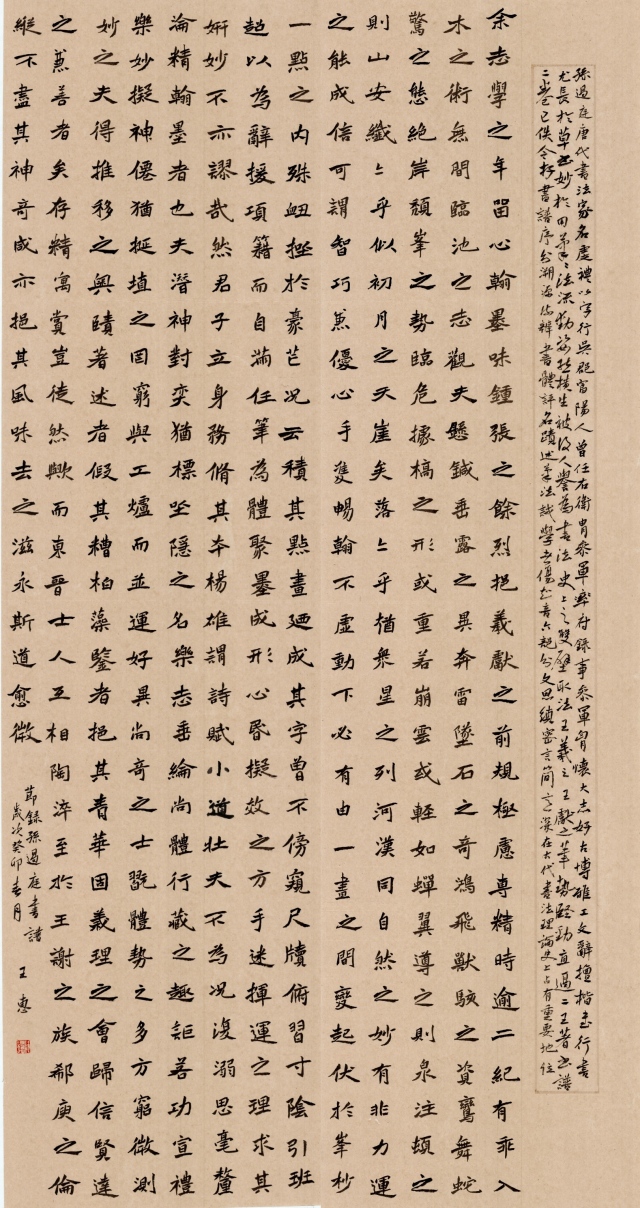 孫過庭唐代書法家名虔禮以字行吳郡富陽人曾任右衛胄參軍率府錄事參軍胸懷大志好古博雅工文辭擅楷書行書
尤長於草書妙於用筆法深勁姿態橫生被後人譽為書法史上之雙璧取法王羲之王獻之筆勢堅勁直逼二王著書譜
二卷已佚今存書譜序分溯源流辨書體評名蹟述筆法誡學書傷知音六部分文思縝密言簡意深在古代書法理論史上占有重要地位
余志學之年留心翰墨味鍾張之餘烈挹羲獻之前規極慮專精時逾二紀有乖入
木之術無間臨池之志觀夫懸鍼垂露之異奔雷墜石之奇鴻飛獸駭之資鸞舞蛇
驚之態絕岸頹峯之勢臨危據槁之形或重若崩雲或輕如蟬翼導之則泉注頓之
則山安纖〻乎似初月之天崖矣落〻乎猶衆星之列河漢同自然之妙有非力運
之能成信可謂智巧兼優心手雙暢翰不虛動下必有由一畫之間變起伏於峯杪
一點之內殊衄挫於豪芒况云積其點畫廼成其字曾不傍窺尺牘俯習寸陰引班
超以為辭援項籍而自滿任筆為體聚墨成形心昏擬效之方手迷揮運之理求其
妍妙不亦謬哉然君子立身務脩其本楊雄謂詩賦小道壯夫不為况復溺思毫釐
淪精翰墨者也夫潛神對奕猶標坐隱之名樂志垂綸尚體行藏之趣詎若功宣禮
樂妙擬神僊猶挻埴之罔窮與工爐而並運好異尚奇之士翫體勢之多方窮微測
妙之夫得推移之奧賾著述者假其糟粕藻鑒者挹其菁華固義理之會歸信賢達
之兼善者矣存精寓賞豈徒然歟而東晉士人互相陶淬至於王謝之族郗庾之倫
縱不盡其神奇咸亦挹其風味去之滋永斯道愈微
節錄孫過庭書譜 王惠
歲次癸卯春月